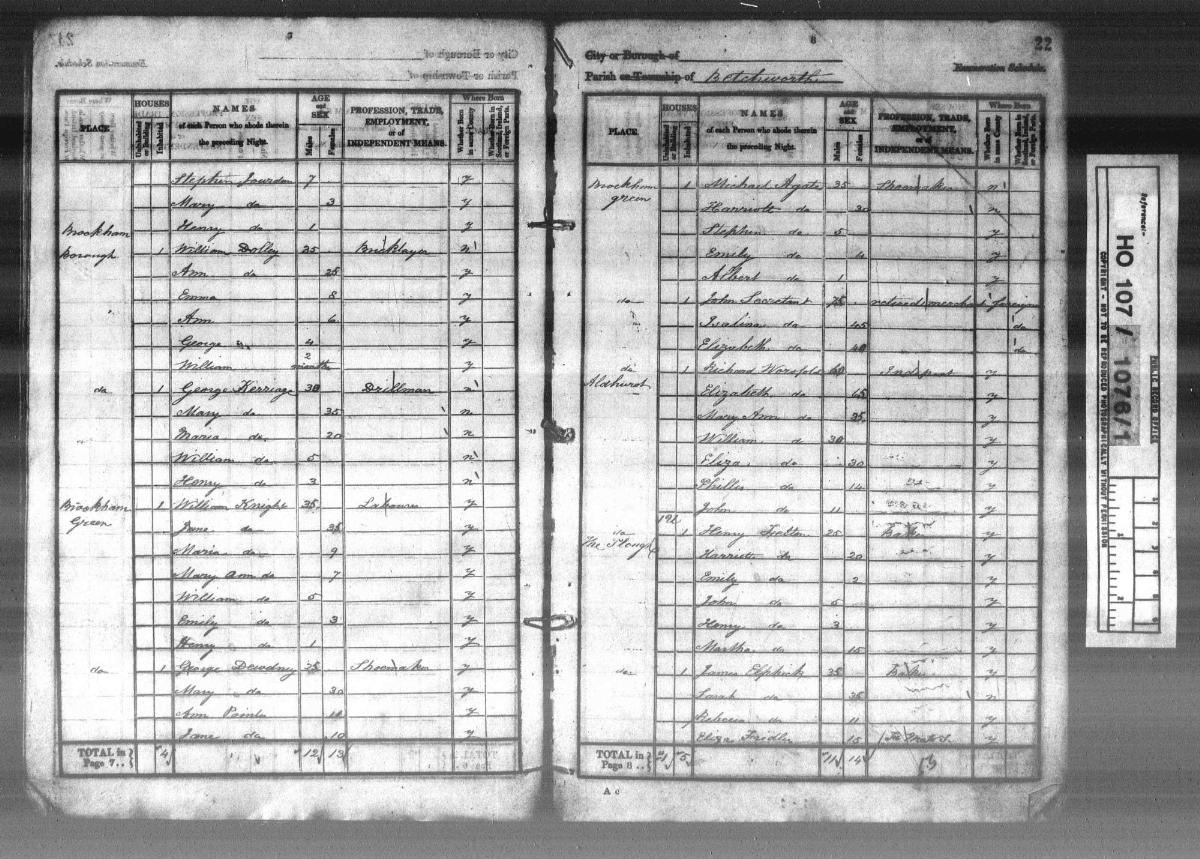 City or Borough of
Parish or Township of
Enumeration Schedule.
PLACE
HOUSES
Uninhabited or Building
Inhabited
NAMES
of each Person who abode therein the preceding Night.
AGE and SEX
Males
Females
PROFESSION, TRADE, EMPLOYMENT, or of INDEPENDENT MEANS.
Where Born
Whether Born in same County
Whether Born in Scotland, Ireland, or Foreign Parts.
Stephen 7 y
Mary do 3 y
Henry do 1 y
Brockham Borough 1 William Dolley 25 Bricklayer n
Ann do 25 y
Emma 8 y
Ann 6 y
George 4 y
William 2 months y
do 1 George Kerriage 30 Drillman n
Mary do 35 n
Maria do 20 n
William do 5 n
Henry do 3 n
Brockham Green 1 William Knight 35 Labourer y
Jane do 35 y
Maria do 9 y
Mary Ann do 7 y
William do 5 y
Emily do 3 y
Henry do 1 y
do 1 George Dewdney 35 Shoemaker y
Mary do 30 y
Ann y
Jane do 10 y
TOTAL in Page 7.. 4 12 13
8
22
City or Borough of
Parish or Township of Betchworth
Enumeration Schedule.
PLACE
HOUSES
Uninhabited or Building
Inhabited
NAMES
of each Person who abode therein the preceding Night.
AGE and SEX
Males
Females
PROFESSION, TRADE, EMPLOYMENT, or of INDEPENDENT MEANS.
Where Born
Whether Born in same County
Whether Born in Scotland, Ireland, or Foreign Parts.
Brockham green 1 Michael Agate 35 Shoemaker n
Harriott do 30 n
Stephen do 5 y
Emily do 4 y
Albert do 1 y
do 1 John Secretan 75 retired merchant foreign
do 45 do
Elizabeth do 40 do
do Aldhurst 1 Richard Worsfold 60 y
Elizabeth do 65 y
Mary Ann do 35 y
William do 30 y
Eliza do 30 y
Phillis do 14 y
John do 11 y
do The Plough 1 Henry 25 y
Harriett do 20 y
Emily do 2 y
John do 5 y
Henry do 3 y
Martha do 15 y
do 1 James Elphick 35 y
Sarah do 35 n
Rebecca do 11 y
Eliza 15 y
TOTAL in Page 8.. 11 14
A c
Reference:-
HO 107 / 1076/1
PUBLIC RECORD OFFICE
COPYRIGHT - NOT TO BE REPRODUCED PHOTOGRAPHICALLY WITHOUT PERMISSION